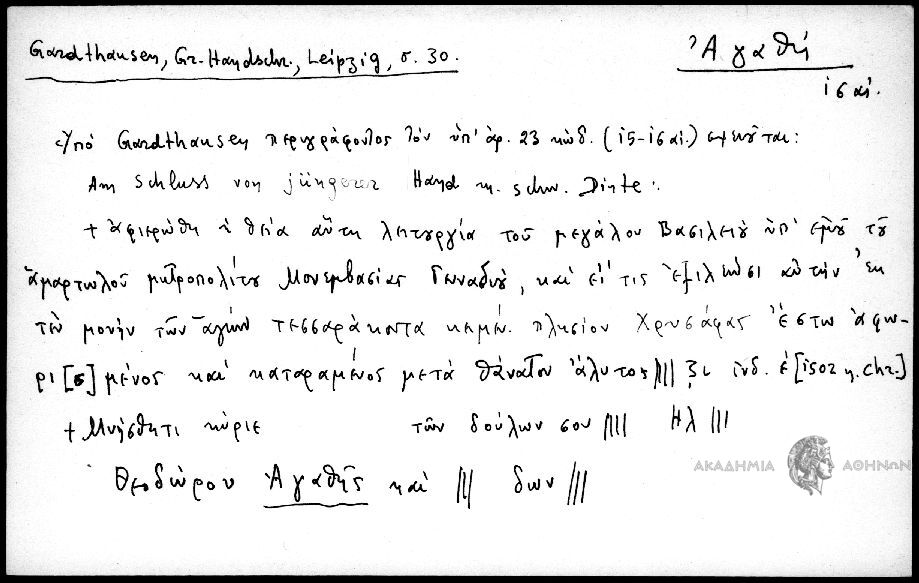 Gardthausen, Gr. Handschr., Leipzig, σ. 30.
Ἀγαθή
ις αἰ.
Ὑπό Gardthausen περιγράφοντος τόν ὑπ' ἀρ. 23 κώδ. (ι5-ι6 αἰ.) σημειοῦται:
Am Schluss von jüngerer Hand m. schw. Dinte:
+ ἀφιερώθη ἡ θεία αὕτη λειτουργία τοῦ μεγάλου Βασιλείου ὑπ' ἐμοῦ τοῦ
ἁμαρτωλοῦ μητροπολίτου Μονεμβασίας Γενναδίου, καί εἴ τις ἐξιλεώσι αὐτήν ἐκ
τήν μονήν τῶν ἁγίων τεσσαράκοντα κειμέν. πλησίον Χρυσάφας ἔστω ἀφω-
ρι[σ]μένος καί καταραμένος μετά θάνατον ἄλυτος ἰνδ. έ [1502 n. Chr.]
+ Μνήσθητι κύριε τῶν δούλων σου Ηλ
Θεοδώρου Ἀγαθῆς καί δων
ΑΚΑΔΗΜΙΑ ΑΘΗΝΩΝ